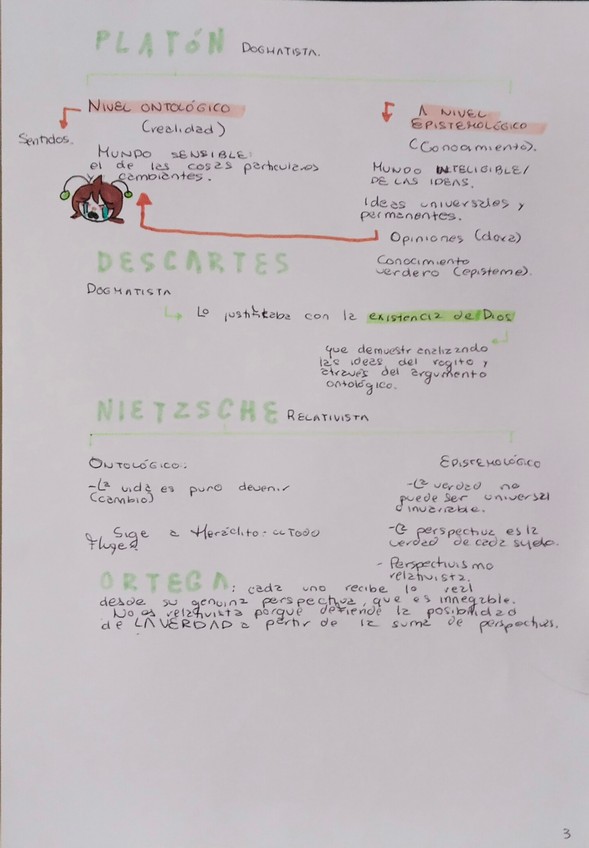 PLATÓN DOGMATISTA.
NIVEL ONTOLÓGICO
(realidad)
Sentidos.
MUNDO SENSIBLE:
el de las cosas particulares
y cambiantes.
A NIVEL
EPISTEMOLÓGICO
(Conocimiento).
MUNDO INTELIGIBLE/
DE LAS IDEAS.
Ideas universales y
permanentes.
Opiniones (doxa)
Conocimiento
verdero (episteme).
DESCARTES
DOGMATISTA
Lo justificaba con la existencia de Dios
que demuestra analizando
las ideas del cogito y
através del argumento
ontológico.
NIETZSCHE RELATIVISTA
ONTOLÓGICO:
-La vida es puro devenir
(cambio)
Sige a Heráclito: "Todo
Fluye"
EPISTEMOLÓGICO
-La verdad no
puede ser universal
e invariable.
-La perspectiva es la
verdad de cada sujeto.
- Perspectivismo
relativista.
ORTEGA: cada uno recibe lo real
desde su genuina perspectiva, que es innegable.
No es relativista porque defiende la posibilidad
de LA VERDAD a partir de la suma de perspectivas.
3